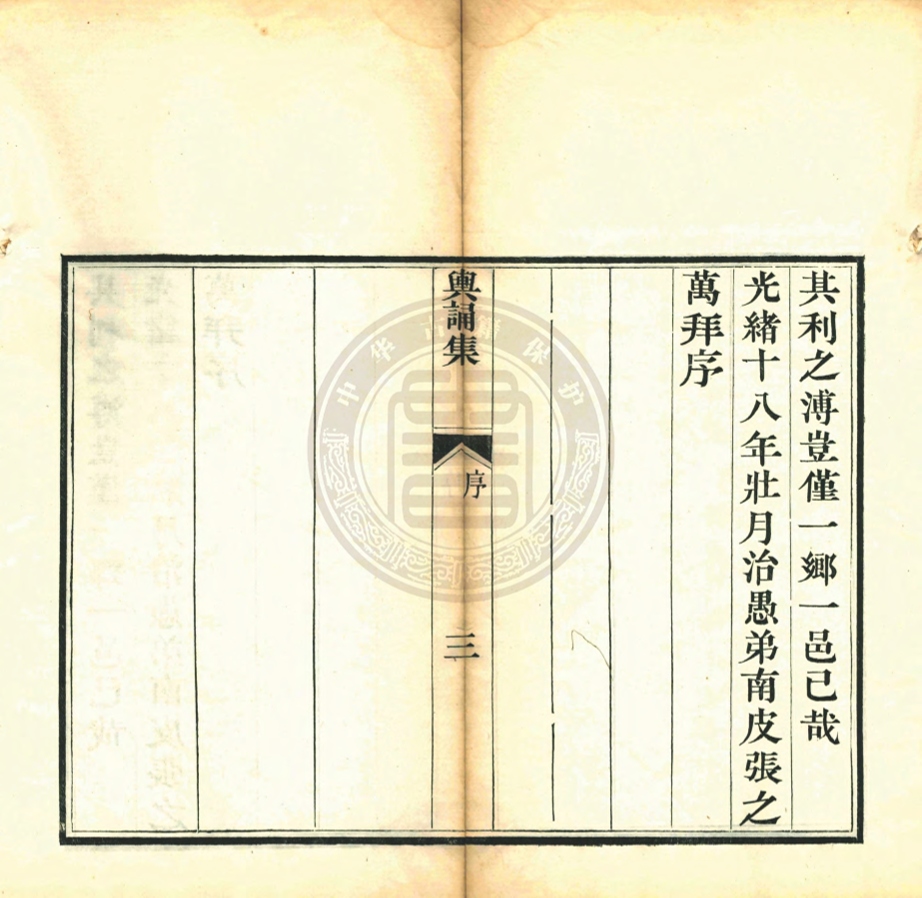 其利之溥豈僅一鄉一邑已哉
光緒十八年壯月治愚弟南皮張之
萬拜序
輿誦集
序
三
中华古籍保护